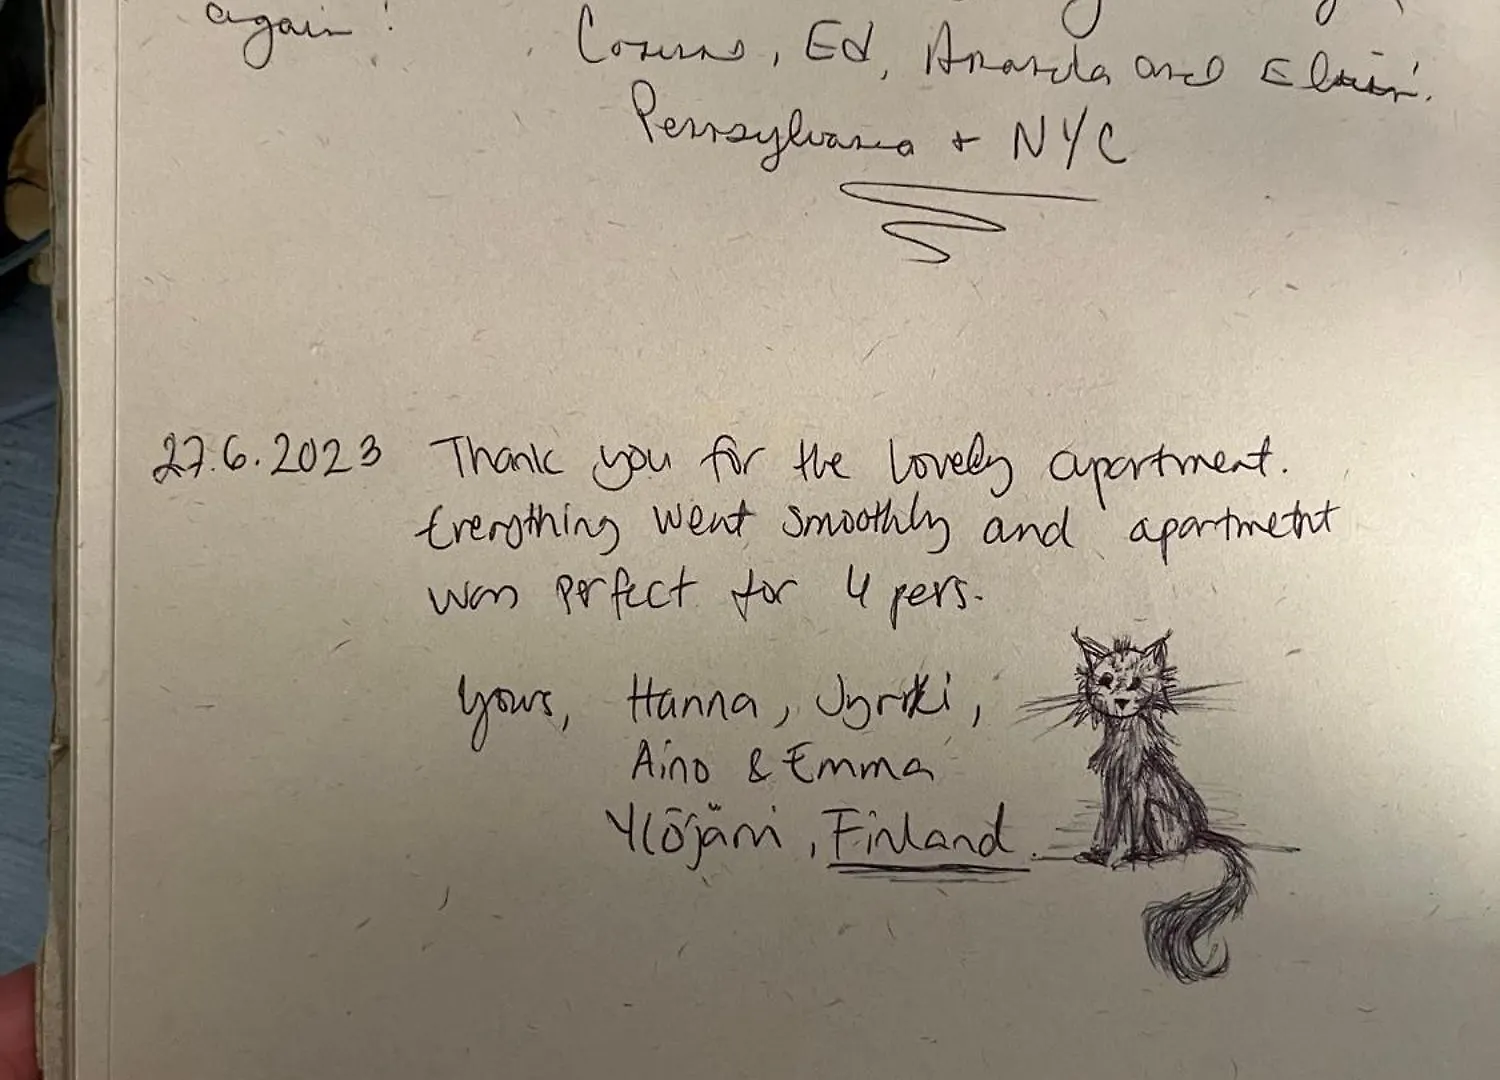 again!
, Ed, Amanda and
Pennsylvania + NYC
27.6.2023 Thank you for the lovely apartment.
Everything went smoothly and apartmetnt
was perfect for 4 pers.
Yours, Hanna, Jyrki,
Aino & Emma
Ylöjärvi, Finland.